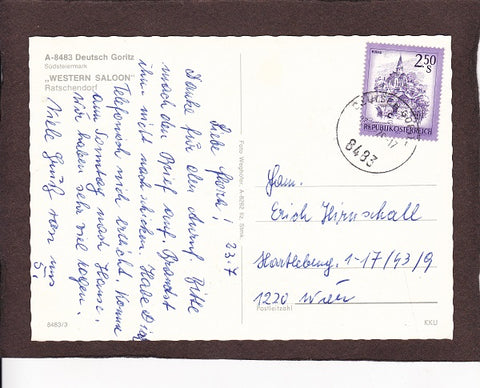 A-8483 Deutsch Goritz
Südsteiermark
„WESTERN SALOON"
Ratschendorf
Liebe
23.7
Danke für den Anruf. Bitte
mach den Brief auf. Brauchst
ihn nicht nach schicken. Habe Dich
Telefonisch nich erreicht. Komme
am Sonntag nach Hause.
Wir haben sehr viel Regen.
Viele Grüße von uns
6483/3
Foto Weghofer, A-8262 Ilz, Stmk.
2.50
S
REPUBLIK ÖSTERREICH
8483
Fam.
Erich Hirnschall
Hartlebeng. 1-17/43/9
1220 Wien
Postleitzahl
KKU